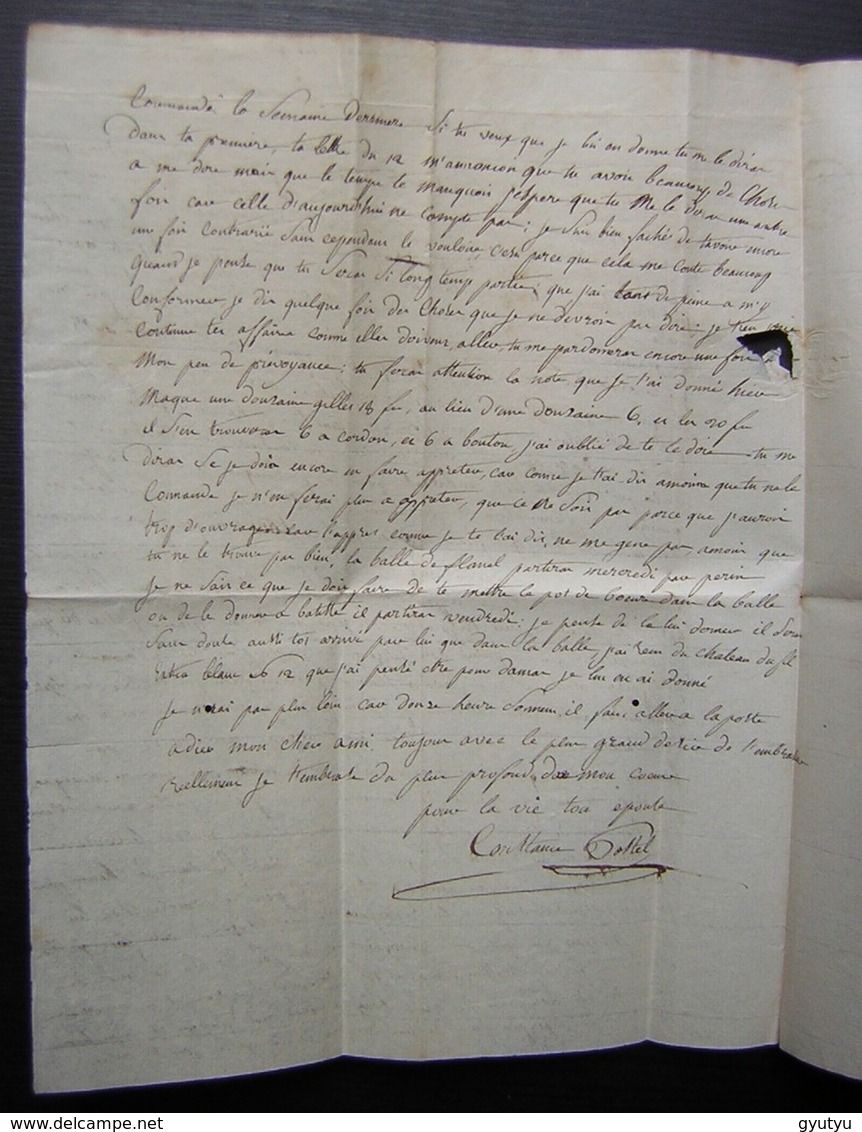 Commandé la Semaine derniere Si tu veux que je lui en donne tu me le diras
dans ta premiere, ta lettre du 12 m'annoncoit que tu avois beaucoup de Chose
a me dire mais que le temps te manquoit j'espere que tu Me le diras une autre
fois car celle d'aujourd'hui ne compte pas; je suis bien fachée de t'avoir encore
une fois contrarié sans cependant le vouloir, c'est parce que cela me coute beaucoup
quand je pense que tu Seras Si long temp partie; que j'ai tant de peine a m'y
Conformer je dis quelque fois des Choses que je ne devrois pas dire; je t'en prie
Continue tes affaires comme elles doivent aller, tu me pardonneras encore une fois
Mon peu de prévoyance; tu feras attention la note que je t'ai donné hier
Maque une douzaine gilles 18 fr, au lieu d'une douzaine 6, et les 20 fr
il s'en trouveras 6 a cordon, et 6 a bouton j'ai oublié de te le dire tu me
diras Se je dois encore en faire appreter, car comme je t'ai dis amoins que tu ne le
Comande je n'en ferai plus appreter, que ce Ne Soit pas parce que j'aurois
trop d'ouvrages car l'appret comme je te l'ai dis, ne me gene pas, amoin que
tu ne le trouve pas bien, la balle de flanel partiras mercredi par perin
Je ne sais ce que je dois faire de te mettre le pot de beure dans la balle
ou de le donner a batitte il partiras vendredi; je pense de le lui donner il Seras
Sans doute aussi tot arrivé par lui que dans la balle, j'ai reçu du chateau du fil
extra blanc No 12 que j'ai pensé etre pour damas je lui en ai donné
Je n'irai pas plus loin car douze heure Sonnent, il faut aller a la poste
adieu mon cher ami toujour avec le plus grand desire de t'embrasser
reellement je t'embrasse du plus profond de mon coeur
pour la vie ton épouse
Constance Postel
delcampe.net
gyutyu